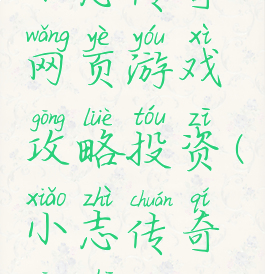 wǎng yè yóu xì
网页游戏
gōng lüè tóu zī
攻略投资(
xiǎo zhì chuán qí
小志传奇